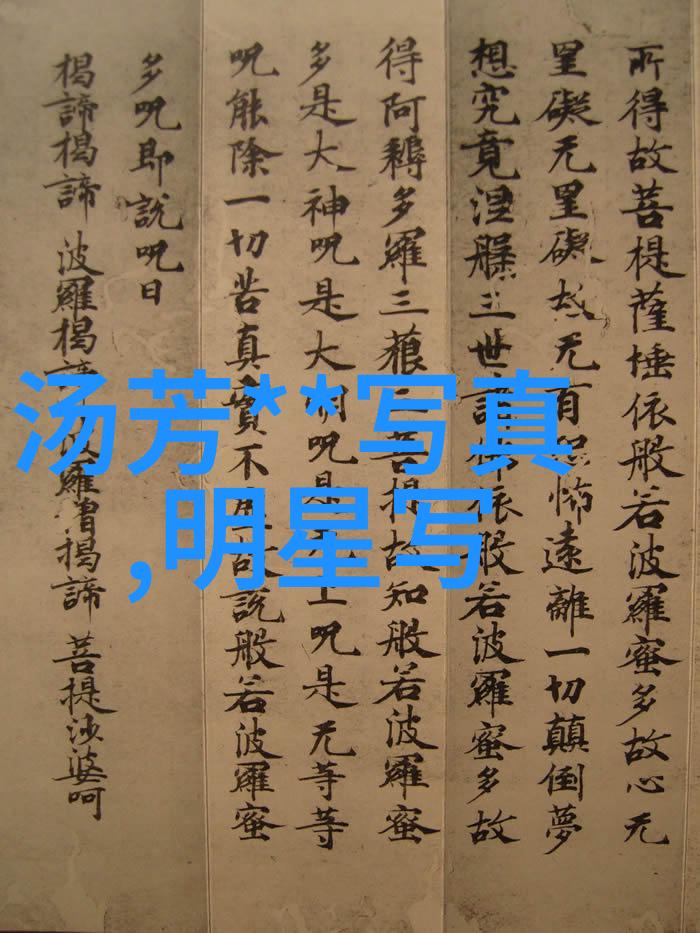 所得故菩提薩埵依般若波羅蜜多故心无
罣礙无罣礙故无有恐怖遠離一切顛倒夢
想究竟涅槃三世諸佛依般若波羅蜜多故
得阿耨多羅三藐三菩提故知般若波羅蜜
多是大神呪是大明呪是无上呪是无等等
呪能除一切苦真實不虛故說般若波羅蜜
多呪即說呪曰
揭諦揭諦 波羅揭諦 波羅僧揭諦 菩提沙婆呵
汤芳**写真
,明星写